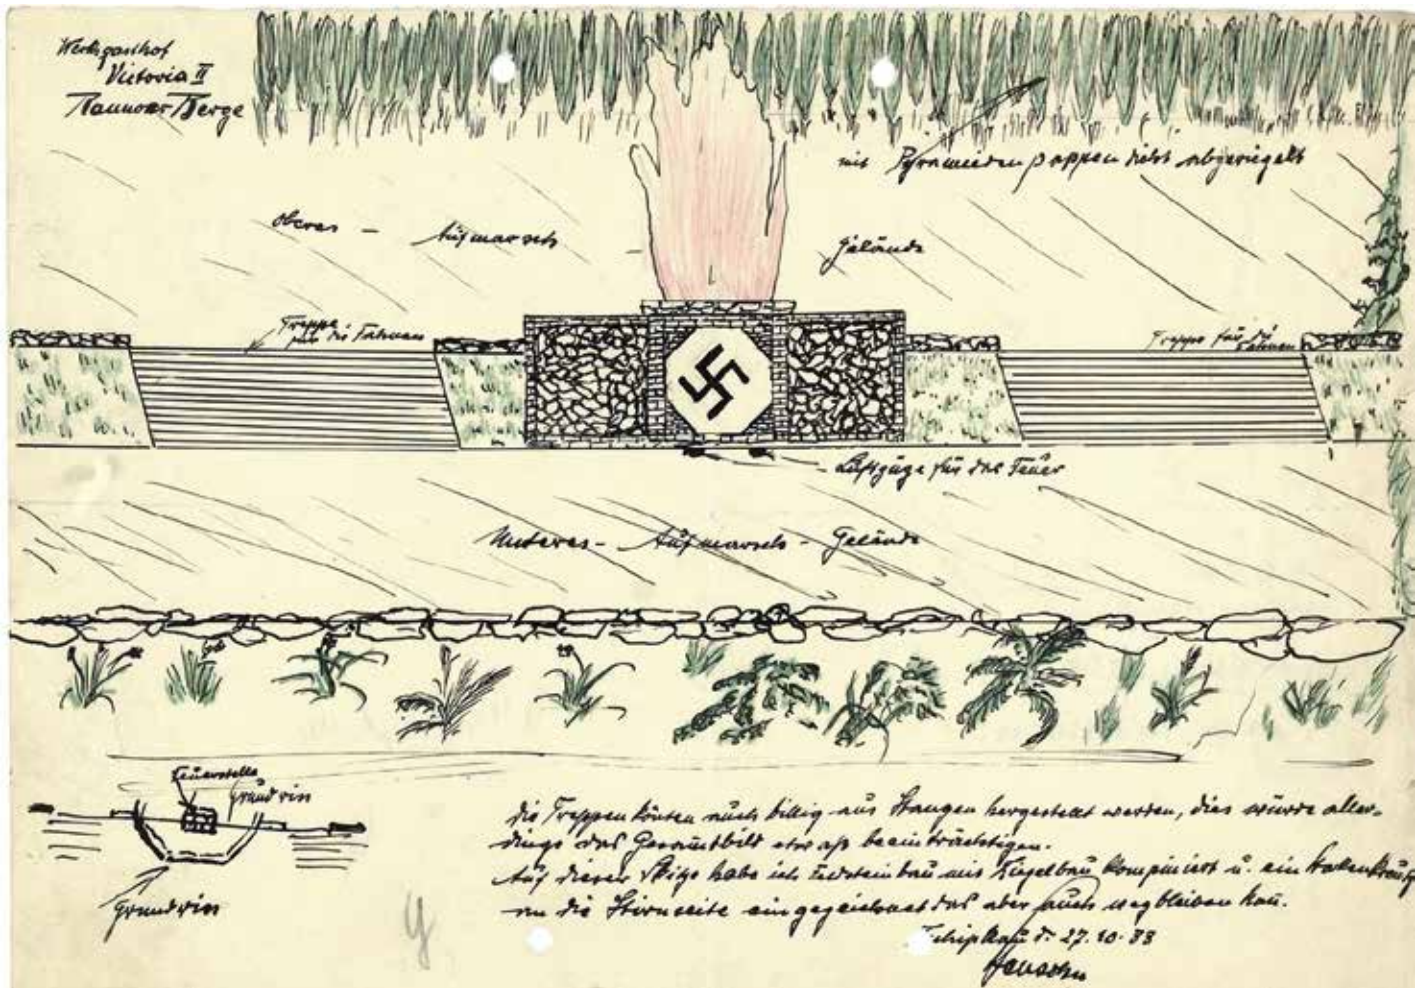 Werksgasthof
Victoria II
Raunoer Berge
mit Pyramiden pappen dicht abgeriegelt
oberes - Aufmarsch Gelände
Treppe
für die Fahnen
Treppe für die
Fahnen
Luftzüge für das Feuer
Unteres - Aufmarsch - Gelände
Feuerstelle
Grundriss
Grundriss
die Treppen könten auch billig aus Stangen hergestellt werden, dies würde aller-
dings das Gesamtbild etwas beeinträchtigen.
Auf dieser Skitze habe ich Feldsteinbau mit Ziegelbau kompiniert u. ein Hakenkreuz
an die Stirnseite eingezeichnet das aber auch wegbleiben kan.
Schipkau d. 27.10.33